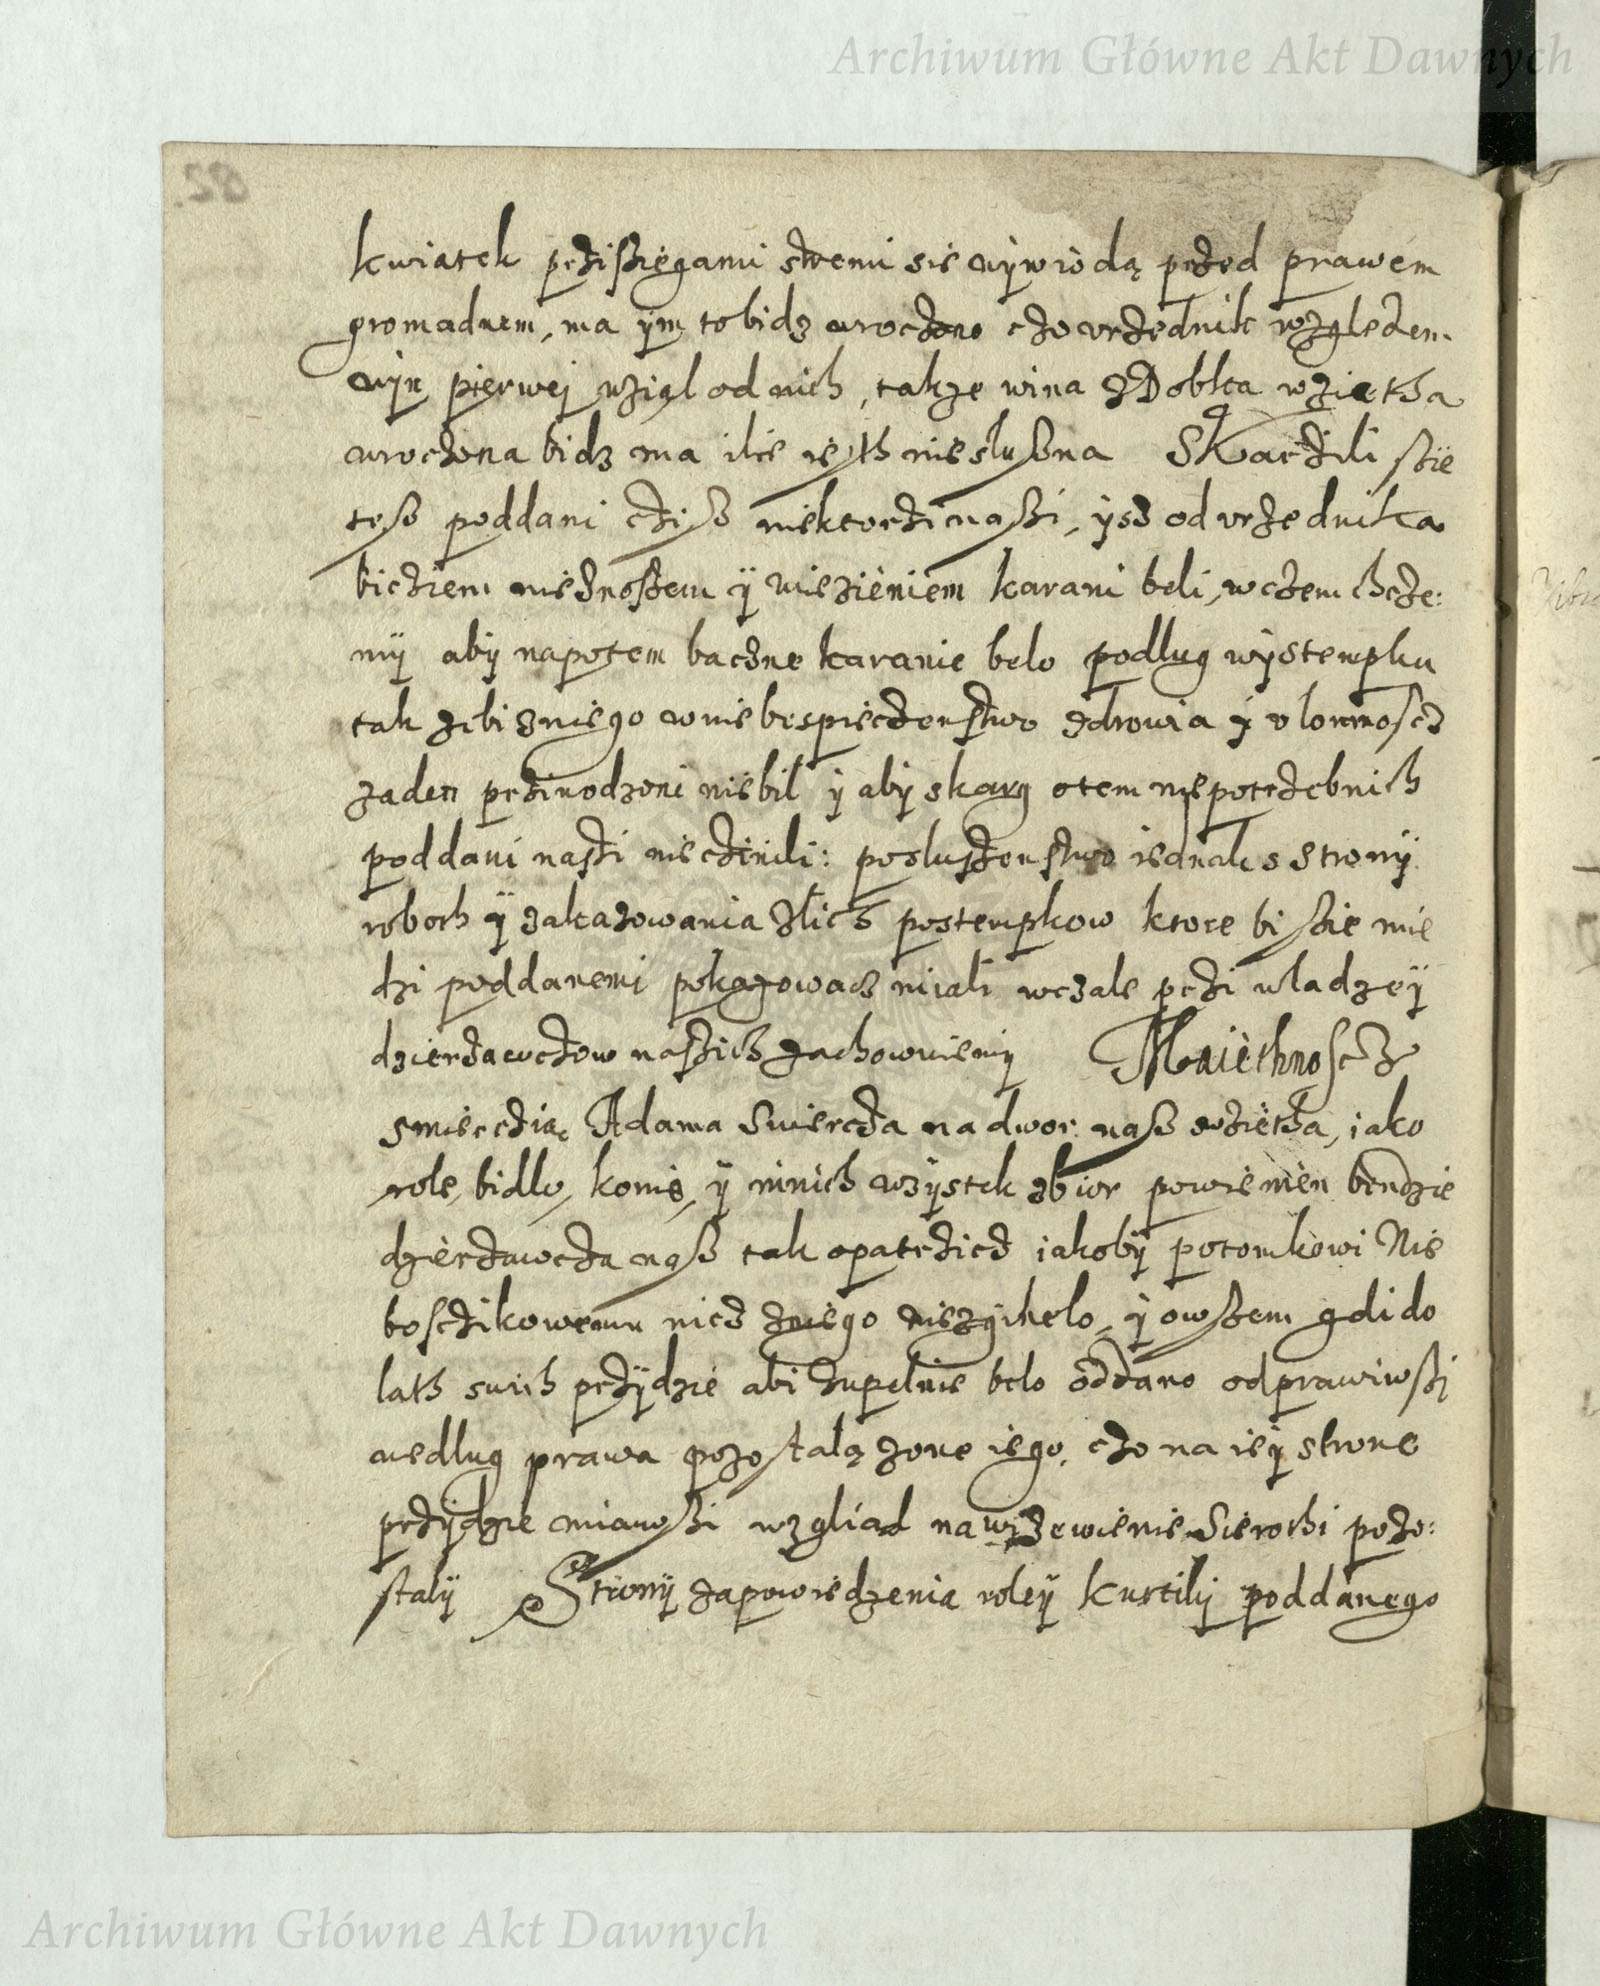 Archiwum Główne Akt Dawnych
82.
kwiatek prziszięgami swemi sie wywiodą przed prawem
gromadnem, ma ÿm to bidz wroczono czo vrzednik wzgledem
wÿn pierwej wziąl od nich, takze wina z Dobka wziętha
wroczona bidz ma ilie iesth niesluszna Skarzili szie
tesz poddani cziż niektorzi naszi, ysz od vrzednika
bicziem nieznosznem ÿ wiezieniem karani beli, w czem chcze:
mÿ abÿ napotem baczne karanie belo podlug wÿstempku
tak zebi z niego w niebespieczenstwo zdrowia ÿ vlomnoscz
zaden prziwodzoni nie bil ÿ abÿ skarg o tem niepotrzebnich
poddani naszi nie czinili: posluszenstwo iednak s stronÿ
roboth ÿ zakazowania zlich postempkow ktore bi szie mie
dzi poddanemi pokazowacz miali wczale przi wladzeÿ
dzierzawczow naszich zachowuiemÿ Maiethnoscz
smierczią Adama Swiercza na dwor nasz wzietha, iako
role, bidlo, konie, ÿ ininich wszÿstek zbior powinien bendzie
dzierzawcza nasz tak opatrzicz iakobÿ potomkowi Nie
boscżikowemu nicz z niego nie zginelo, ÿ owszem gdi do
lath swich przÿdzie abi zupelnie belo oddano odprawiwszi
wedlug prawa pozostalą zone iego, czo na ieÿ strone
przÿdzie miawszi wzgliad na wÿzewienie Sierothi pozo:
stalÿ Stronÿ zapowiedzenia roleÿ Kurtilÿ poddanego
Archiwum Główne Akt Dawnych